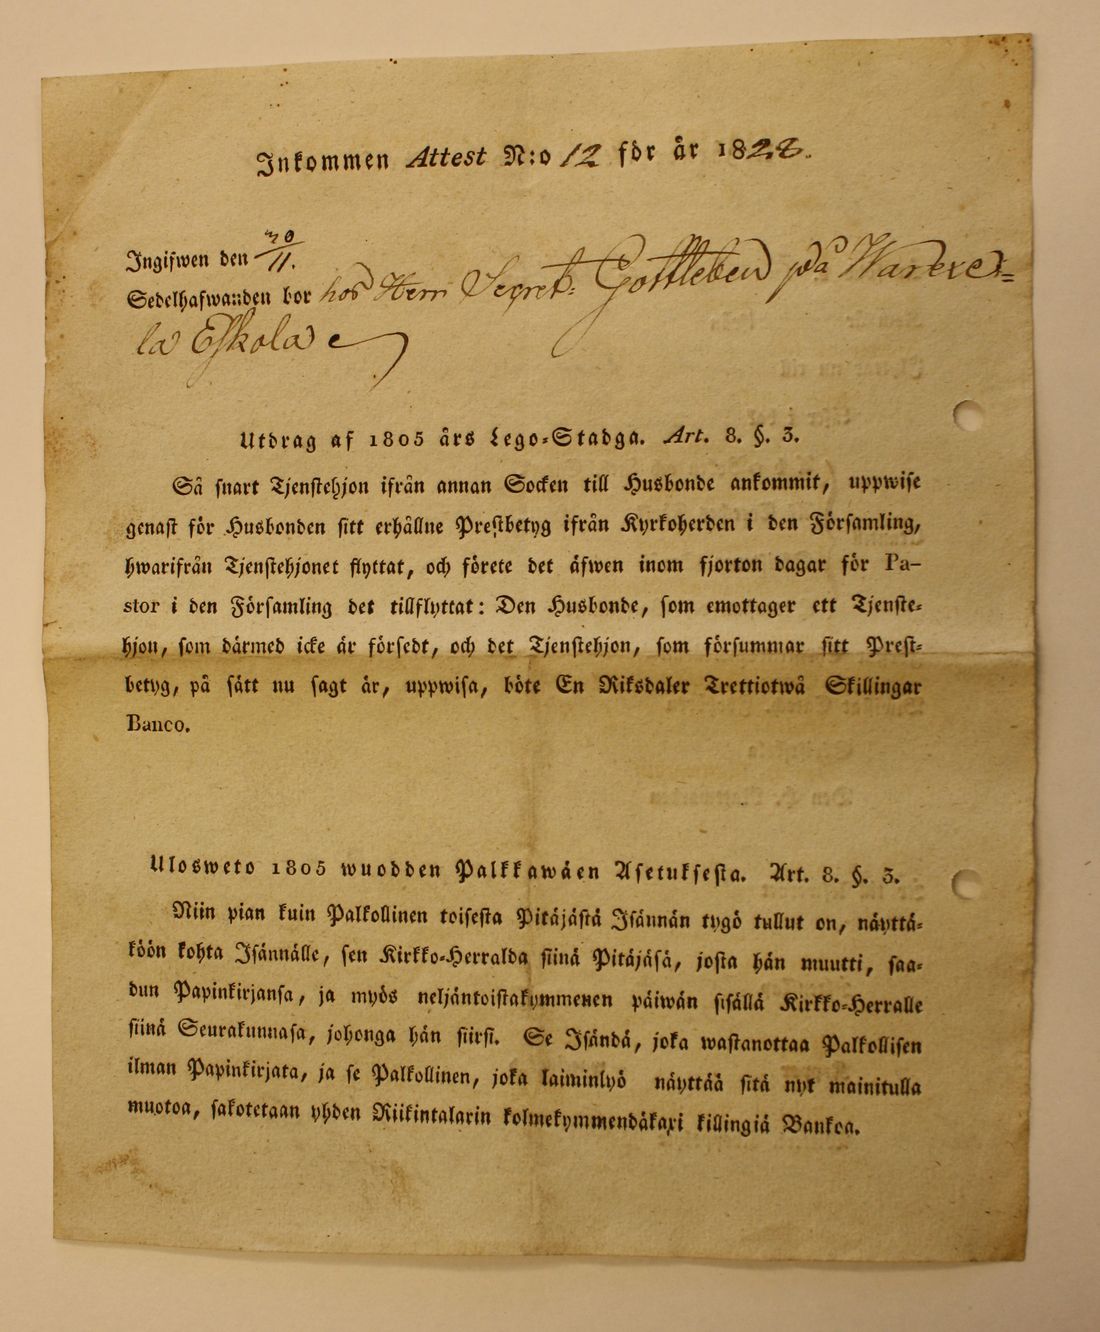 Inkommen Attest N:o 12 för år 1828.
Ingifwen den 30/11.
Sedelhafwanden bor hos Herr Secret: Gottleben på Warexe=
la Eskola
Utdrag af 1805 års Lego-Stadga. Art. 8. §. 3.
Så snart Tjenstehjon ifrån annan Socken till Husbonde ankommit, uppwise
genast för Husbonden sitt erhållne Prestbetyg ifrån Kyrkoherden i den Församling,
hwarifrån Tjenstehjonet flyttat, och förete det äfwen inom fjorton dagar för Pa-
stor i den Församling det tillflyttat: Den Husbonde, som emottager ett Tjenste-
hjon, som därmed icke är försedt, och det Tjenstehjon, som försummar sitt Prest-
betyg, på sätt nu sagt är, uppwisa, böte En Riksdaler Trettiotwå Skillingar
Banco.
Ulosweto 1805 wuodden Palkkawäen Asetuksesta. Art. 8. §. 3.
Niin pian kuin Palkollinen toisesta Pitäjästä Isännän tygö tullut on, näyttä-
köön kohta Isännälle, sen Kirkko-Herralda siinä Pitäjäsä, josta hän muutti, saa-
dun Papinkirjansa, ja myös neljäntoistakymmenen päiwän sisällä Kirkko-Herralle
siinä Seurakunnasa, johonga hän siirsi. Se Isändä, joka wastanottaa Palkollisen
ilman Papinkirjata, ja se Palkollinen, joka laiminlyö näyttää sitä nyt mainitulla
muotoa, sakotetaan yhden Riikintalarin kolmekymmendäkaxi killingiä Bankoa.